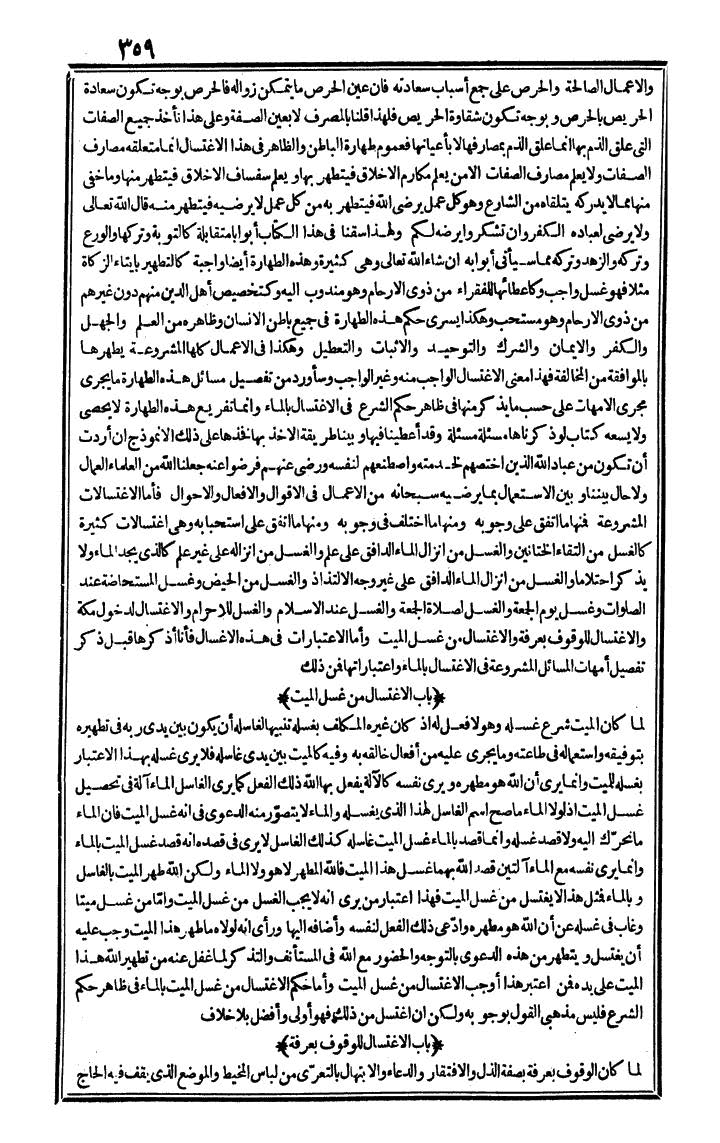 ٣٥٩
والاعمال الصالحة والحرص على جمع أسباب سعادته فان عين الحرص ما يتمكن زواله فالحرص بوجه تكون سعادة
الحريص بالحرص وبوجه تكون شقاوة الحريص فلهذا قلنا بالمصرف لا بعين الصفة وعلى هذا نأخذ جميع الصفات
التى علق الذم بها انما علق الذم بمصارفها لا بأعيانها فعموم طهارة الباطن والظاهر فى هذا الاغتسال انما متعلقه مصارف
الصفات ولا يعلم مصارف الصفات الا من يعلم مكارم الاخلاق فيتطهر بها ويعلم سفساف الاخلاق فيتطهر منها وما خفى
منها مما لا يدركه يتلقاه من الشارع وهو كل عمل يرضى الله فيتطهر به من كل عمل لا يرضيه فيتطهر منه قال الله تعالى
ولا يرضى لعباده الكفر وان تشكروا يرضه لكم ولهذا سقنا فى هذا الكتاب أبوابا متقابلة كالتوبة وتركها والورع
وتركه والزهد وتركه مما سيأتى أبوابه ان شاء الله تعالى وهى كثيرة وهذه الطهارة أيضا واجبة كالتطهير بايتاء الزكاة
مثلا فهو غسل واجب وكاعطائها للفقراء من ذوى الارحام وهو مندوب اليه وكتخصيص أهل الدين منهم دون غيرهم
من ذوى الارحام وهو مستحب وهكذا يسرى حكم هذه الطهارة فى جميع باطن الانسان وظاهره من العلم والجهل
والكفر والايمان والشرك والتوحيد والاثبات والتعطيل وهكذا فى الاعمال كلها المشروعة يطهرها
بالموافقة من المخالفة فهذا معنى الاغتسال الواجب منه وغير الواجب وسأورد من تفصيل مسائل هذه الطهارة ما يجرى
مجرى الامهات على حسب ما يذكر منها فى ظاهر حكم الشرع فى الاغتسال بالماء وانما تفريع هذه الطهارة لا يحصى
ولا يسعه كتاب لو ذكرناها مسئلة مسئلة وقد أعطينا فيها وبينا طريقة الاخذ بها فخذها على ذلك الانموذج ان أردت
أن تكون من عباد الله الذين اختصهم لخدمته واصطنعهم لنفسه ورضى عنهم فرضوا عنه جعلنا الله من العلماء العمال
ولا حال بيننا وبين الاستعمال بما يرضيه سبحانه من الاعمال فى الاقوال والافعال والاحوال فأما الاغتسالات
المشروعة فنها ما اتفق على وجوبه ومنها ما اختلف فى وجوبه ومنها ما اتفق على استحبابه وهى اغتسالات كثيرة
كالغسل من التقاء الختانين والغسل من انزال الماء الدافق على علم والغسل من انزاله على غير علم كالذى يجد الماء ولا
يذكر احتلاما والغسل من انزال الماء الدافق على غير وجه الالتذاذ والغسل من الحيض وغسل المستحاضة عند
الصلوات وغسل يوم الجمعة والغسل لصلاة الجمعة والغسل عند الاسلام والغسل للاحرام والاغتسال لدخول مكة
والاغتسال للوقوف بعرفة والاغتسال من غسل الميت وأما الاعتبارات فى هذه الاغسال فأنا أذكرها قبل ذكر
تفصيل أمهات المسائل المشروعة فى الاغتسال بالماء واعتباراتها فن ذلك
﴿باب الاغتسال من غسل الميت﴾
لما كان الميت شرع غسله وهو لا فعل له اذ كان غيره المكلف بغسله تنبيها لغاسله أن يكون بين يدى ربه فى تطهيره
بتوفيقه واستعماله فى طاعته وما يجرى عليه من أفعال خالقه به وفيه كالميت بين يدى غاسله فلا يرى غسله بهذا الاعتبار
بغسله للميت وانما يرى أن الله هو مطهره ويرى نفسه كالآلة يفعل بها الله ذلك الفعل كما يرى الغاسل الماء آلة فى تحصيل
غسل الميت اذ لولا الماء ما صح اسم الغاسل لهذا الذى يغسله والماء لا يتصور منه الدعوى فى انه غسل الميت فان الماء
ما تحرك اليه ولا قصد غسله وانما قصد بالماء غسل الميت غاسله كذلك الغاسل لا يرى فى قصده انه قصد غسل الميت بالماء
وانما يرى نفسه مع الماء آلتين قصد الله بهما غسل هذا الميت فالله المطهر لا هو ولا الماء ولكن الله طهر الميت بالغاسل
وبالماء فمثل هذا لا يغتسل من غسل الميت فهذا اعتبار من يرى انه لا يجب الغسل من غسل الميت وامّا من غسل ميتا
وغاب فى غسله عن أن الله هو مطهره وادّعى ذلك الفعل لنفسه وأضافه اليها ورأى انه لولاه ما طهر هذا الميت وجب عليه
أن يغتسل ويتطهر من هذه الدعوى بالتوجه والحضور مع الله فى المستأنف والتذكر لما غفل عنه من تطهير الله هذا
الميت على يده فن اعتبر هذا أوجب الاغتسال من غسل الميت وأما حكم الاغتسال من غسل الميت بالماء فى ظاهر حكم
الشرع فليس مذهبى القول بوجوبه ولكن ان اغتسل من ذلك فهو أولى وأفضل بلا خلاف
﴿باب الاغتسال للوقوف بعرفة﴾
لما كان الوقوف بعرفة بصفة الذل والافتقار والدعاء والابتهال بالتعرّى من لباس المخيط والموضع الذى يقف فيه الحاج